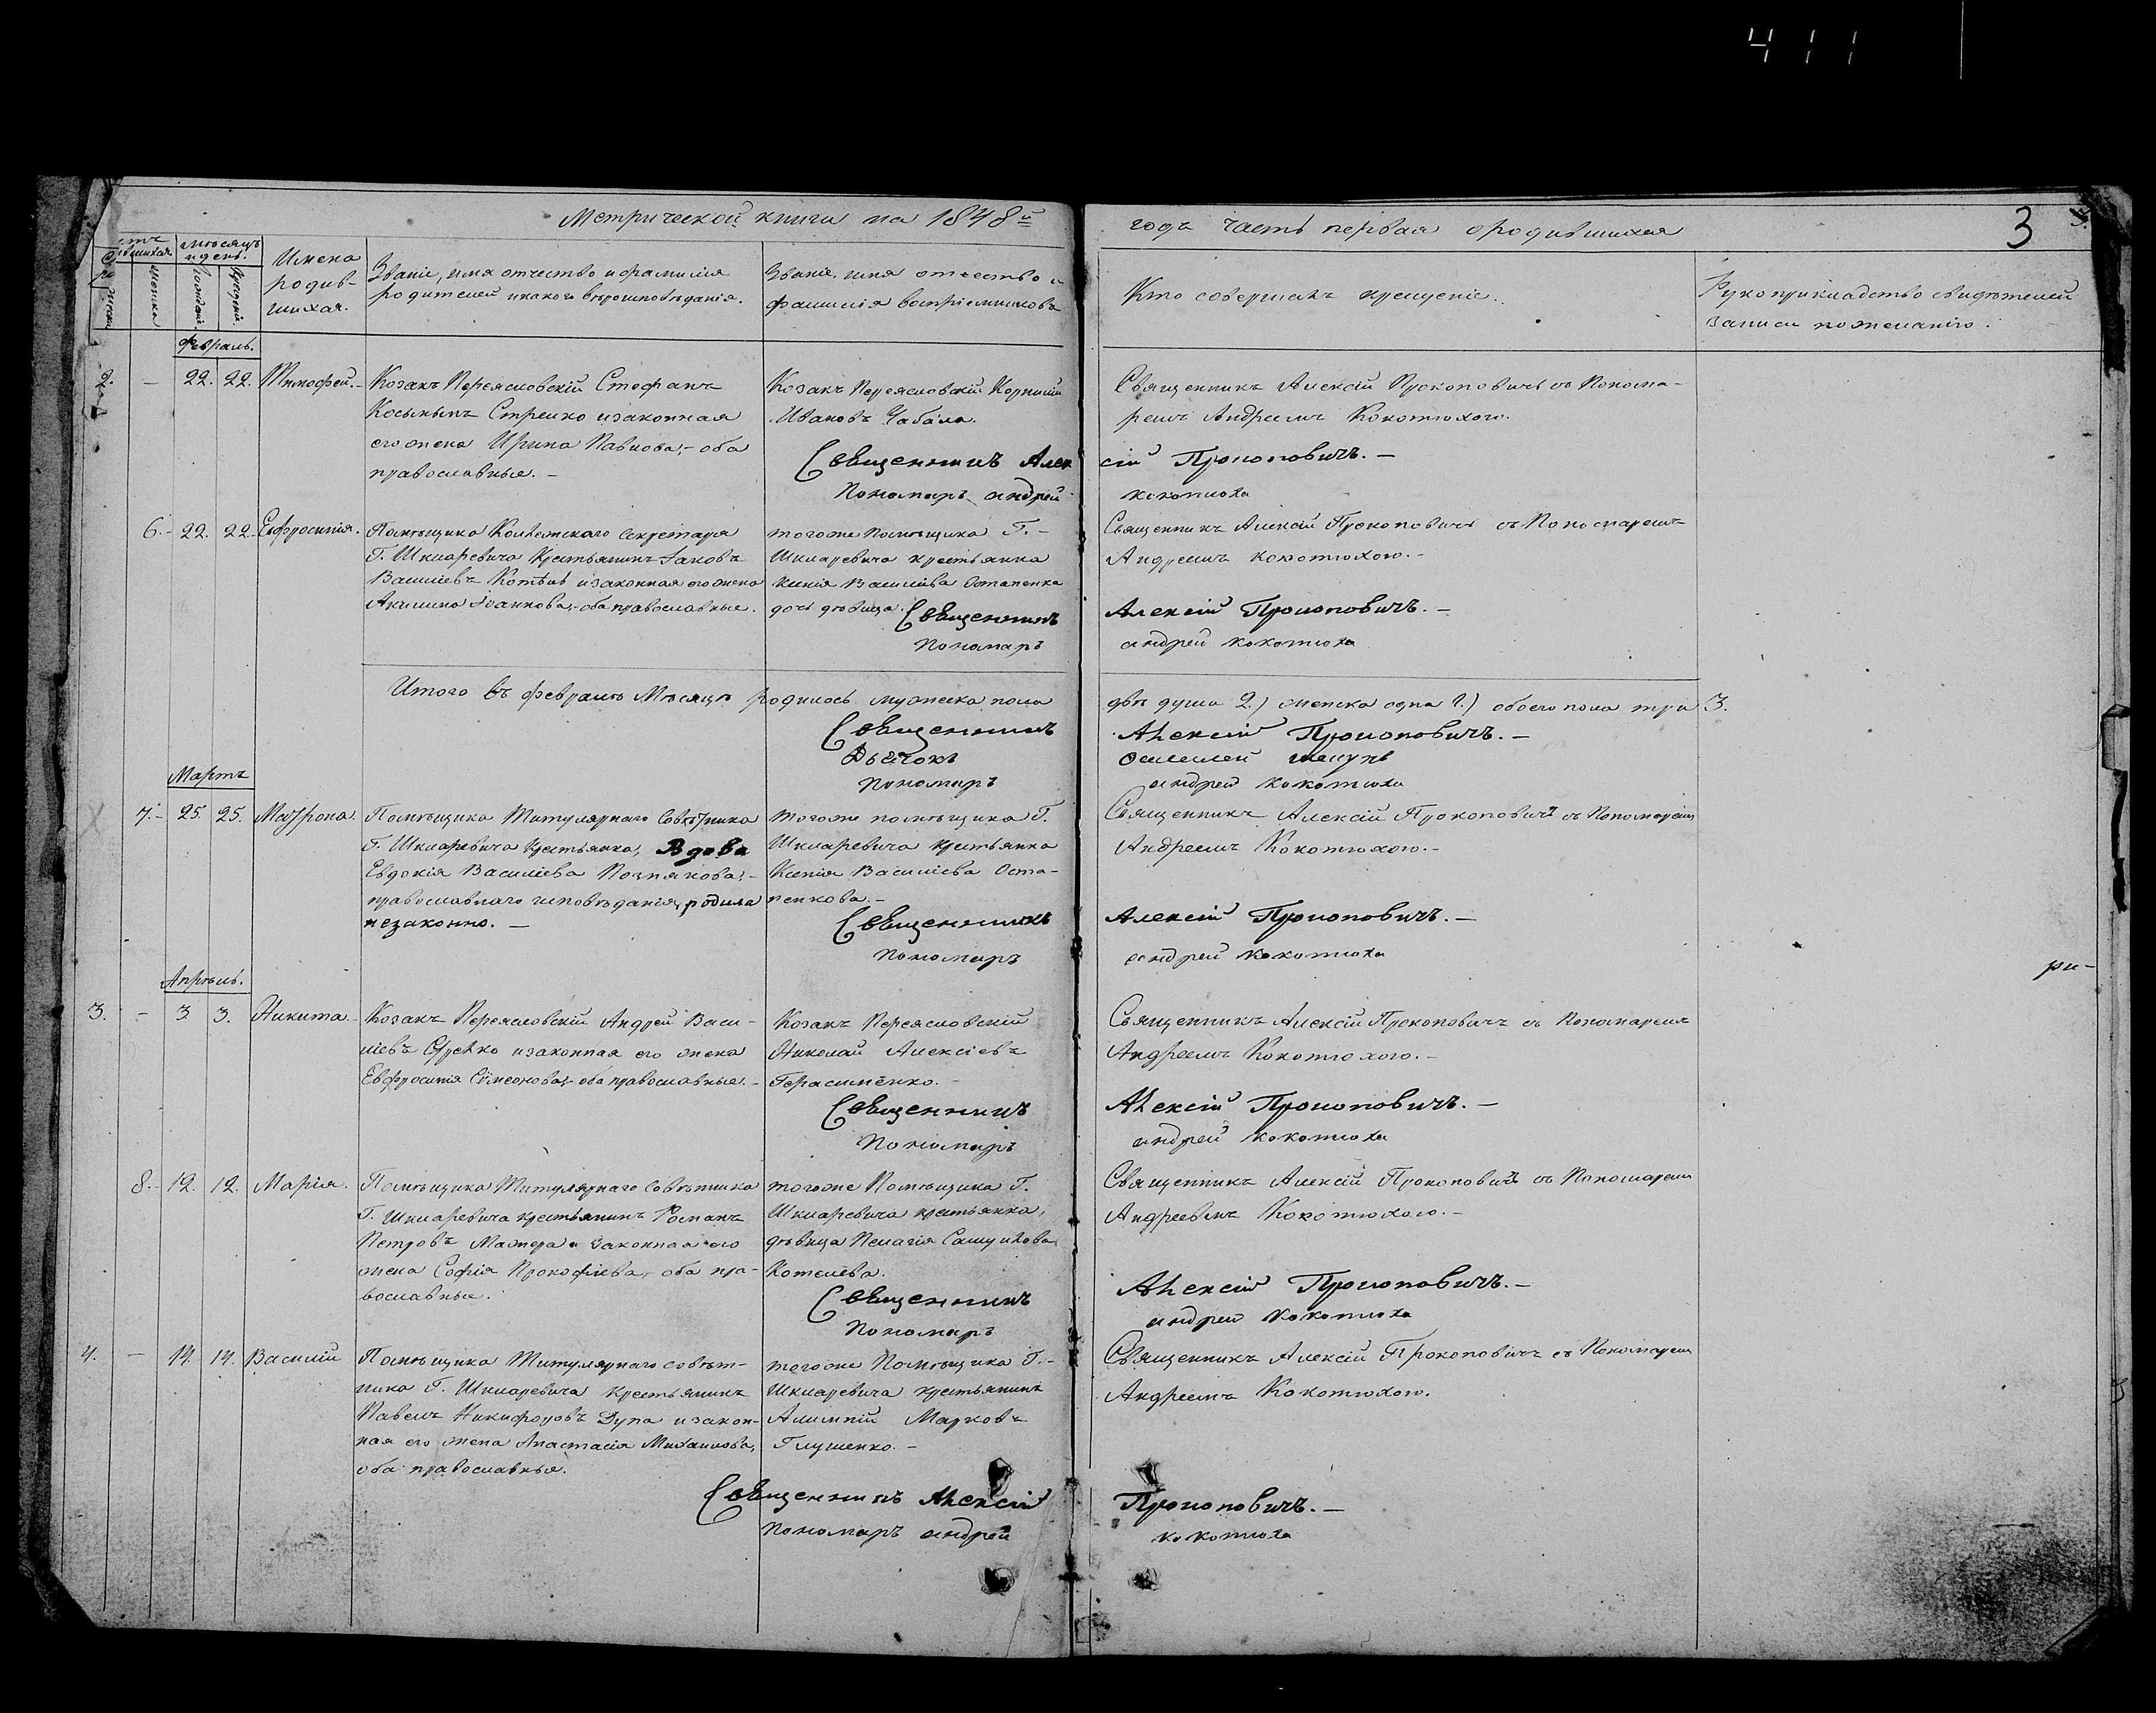 411
Метрической книги на 1848й
годъ часть первая о родившихся
3
Мѣсяцъ
и день.
Имена
родив-
шихся.
Званіе, имя отчество и фамилія
родителей и какого вѣроисповѣданія.
Званіе, имя отчество и
фамилія воспріемниковъ
Кто совершалъ крещеніе.
Рукоприкладство свидѣтелей
записи по желанію.
Февраль.
2. - 22. 22. Тимофей. Козакъ Переясловскій Стефанъ
Косьминъ Стрелко и законная
его жена Ирина Павлова; - оба
православные. -
Козакъ Переясловскій Корнилій
Ивановъ Чабала.
Священникъ Алексій Прокоповичъ съ Понома-
ремъ Андреемъ Кокотюхою.
Священникъ Алексій Прокоповичъ. -
Пономарь андрей кокотюха
6. - 22. 22. Евфросинія. Помѣщика Коллежскаго Секретаря
Г. Шкляревича Крестьянинъ Іаковъ
Василіевъ и законная его жена
Акилина Іоаннова, - оба православные.
тогоже помѣщика Г. -
Шкляревича крестьянка
Ксенія Василіева Остапенка
дочь дѣвица.
Священникъ Алексій Прокоповичъ съ Пономаремъ
Андреемъ Кокотюхою. -
Священникъ Алексій Прокоповичъ. -
Пономарь андрей кокотюха
Итого въ февралѣ Мѣсяцѣ родилось мужеска пола
двѣ души 2.) женска одна 1.) обоего пола три 3.
Священникъ Алексій Прокоповичъ. -
Дьячокъ
Пономарь андрей кокотюха
Мартъ
7. - 25. 25. Матрона. Помѣщика Титулярнаго Совѣтника
Г. Шкляревича Крестьянка, Вдова
Евдокія Василіева Познякова; -
православнаго исповѣданія, родила
незаконно. -
тогоже помѣщика Г.
Шкляревича крестьянка
Ксенія Василіева Оста-
пенкова. -
Священникъ Алексій Прокоповичъ съ Пономаремъ
Андреемъ Кокотюхою. -
Священникъ Алексій Прокоповичъ. -
Пономарь андрей кокотюха
ри-
Апрѣль.
3. - 3. 3. Никита. Козакъ Переясловскій Андрей Васи-
ліевъ и законная его жена
Евфросинія Симеонова; - оба православные. -
Козакъ Переясловскій
Николай Алексіевъ
Герасименко. -
Священникъ Алексій Прокоповичъ съ Пономаремъ
Андреемъ Кокотюхою. -
Священникъ Алексій Прокоповичъ. -
Пономарь андрей кокотюха
8. - 12. 12. Марія. Помѣщика Титулярнаго Совѣтника
Г. Шкляревича крестьянинъ Романъ
Петровъ и законная его
жена Софія Прокофіева, оба пра-
вославные.
тогоже Помѣщика Г.
Шкляревича крестьянка,
дѣвица Пелагія Самуилова
Котелева.
Священникъ Алексій Прокоповичъ съ Пономаремъ
Андреемъ Кокотюхою. -
Священникъ Алексій Прокоповичъ. -
Пономарь андрей кокотюха
4. - 14. 14. Василій Помѣщика Титулярнаго совѣт-
ника Г. Шкляревича крестьянинъ
Павелъ Никифоровъ Дупа и закон-
ная его жена Анастасія Михаилова,
оба православные.
тогоже Помѣщика Г. -
Шкляревича крестьянинъ
Алимпій Марковъ
Глушенко. -
Священникъ Алексій Прокоповичъ съ Пономаремъ
Андреемъ Кокотюхою.
Священникъ Алексій Прокоповичъ. -
Пономарь андрей кокотюха